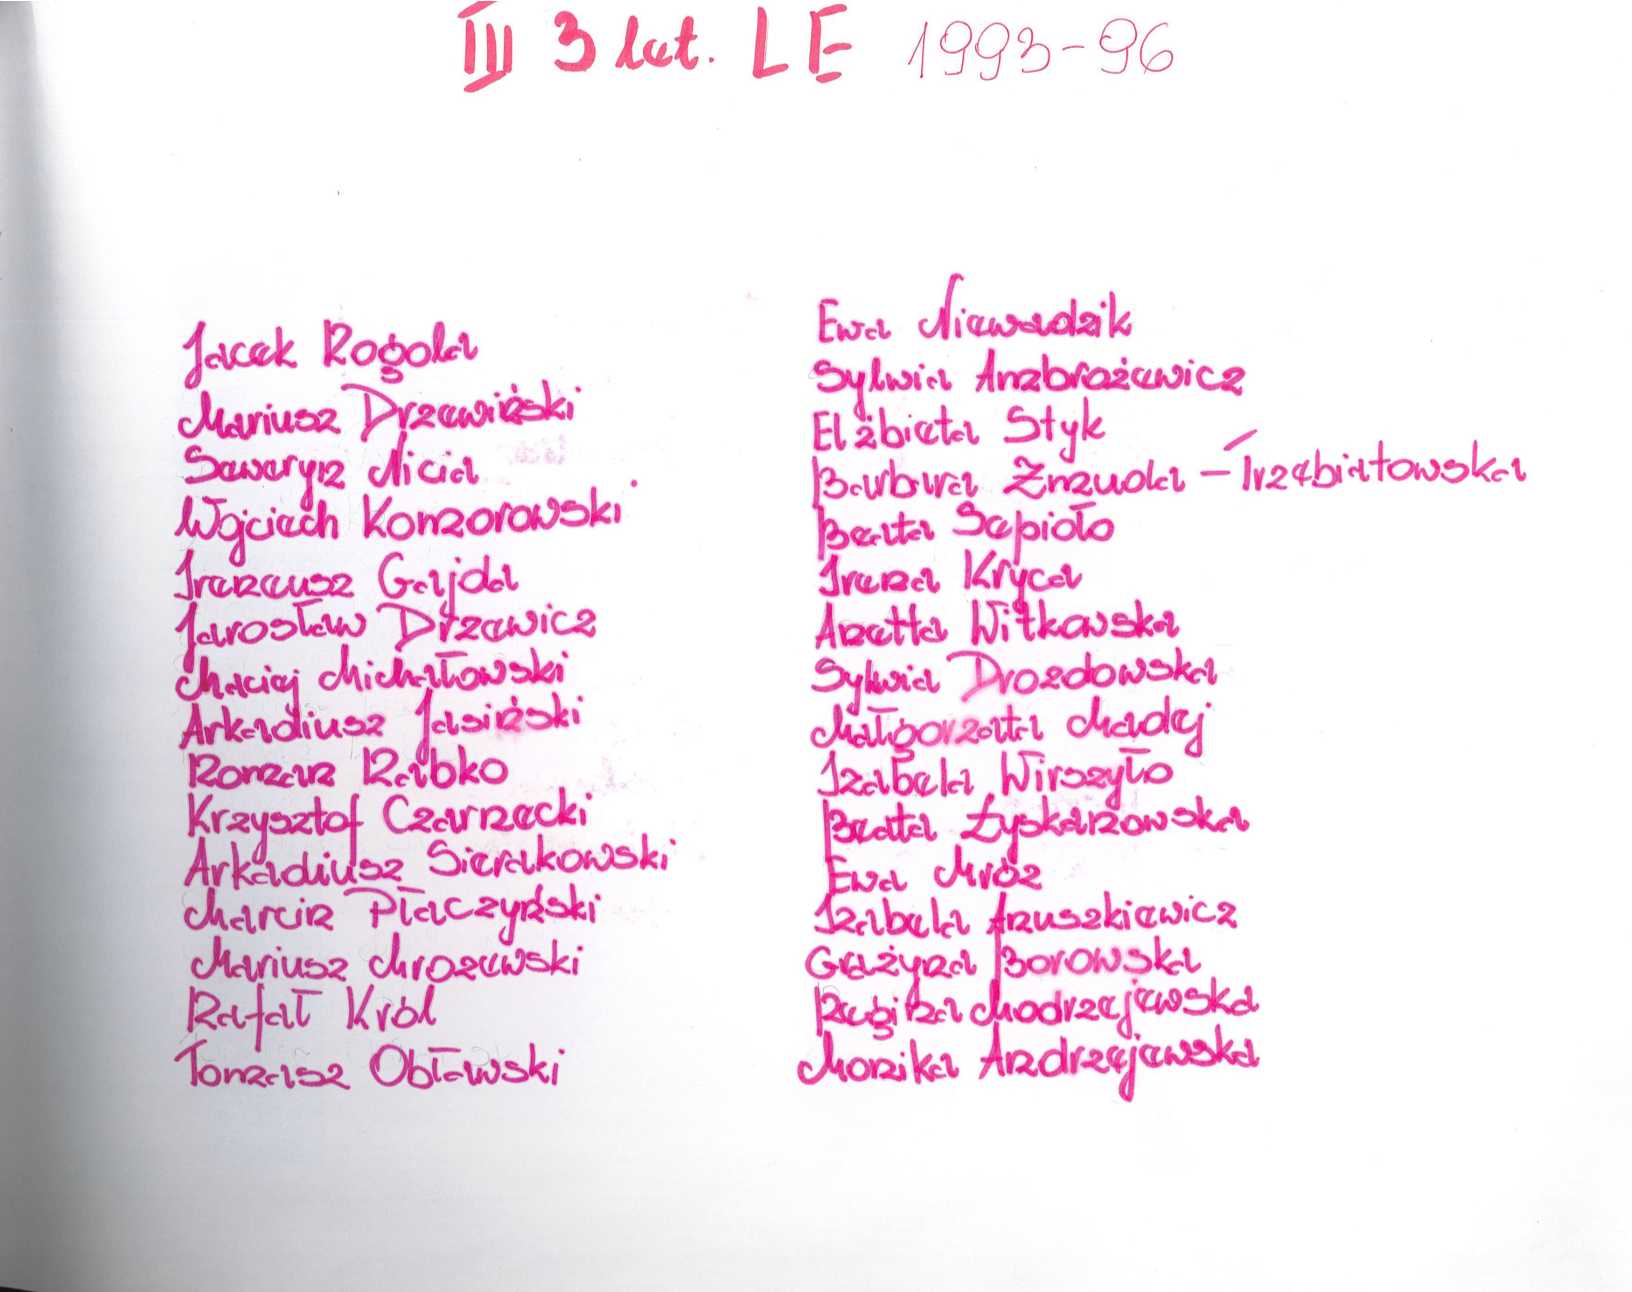 III 3 let. LE 1993-96
Jacek Rogola
Mariusz Drzewiński
Seweryn Nicia
Wojciech Komorowski
Ireneusz Gajda
Jarosław Drzewicz
Maciej Michałowski
Arkadiusz Jasiński
Roman Rabko
Krzysztof Czarnecki
Arkadiusz Sierakowski
Marcin Płaczyński
Mariusz Mrozewski
Rafał Król
Tomasz Obławski
Ewa Niewadzik
Sylwia Ambrożewicz
Elżbieta Styk
Barbara Żmuda - Trzebiatowska
Beata Sepioło
Irena Kryca
Anetta Witkowska
Sylwia Drozdowska
Małgorzata Madej
Izabela Wirszyło
Beata Łyskanowska
Ewa Mróz
Izabela Anuszkiewicz
Grażyna Borowska
Regina Modrzejewska
Monika Andrzejewska